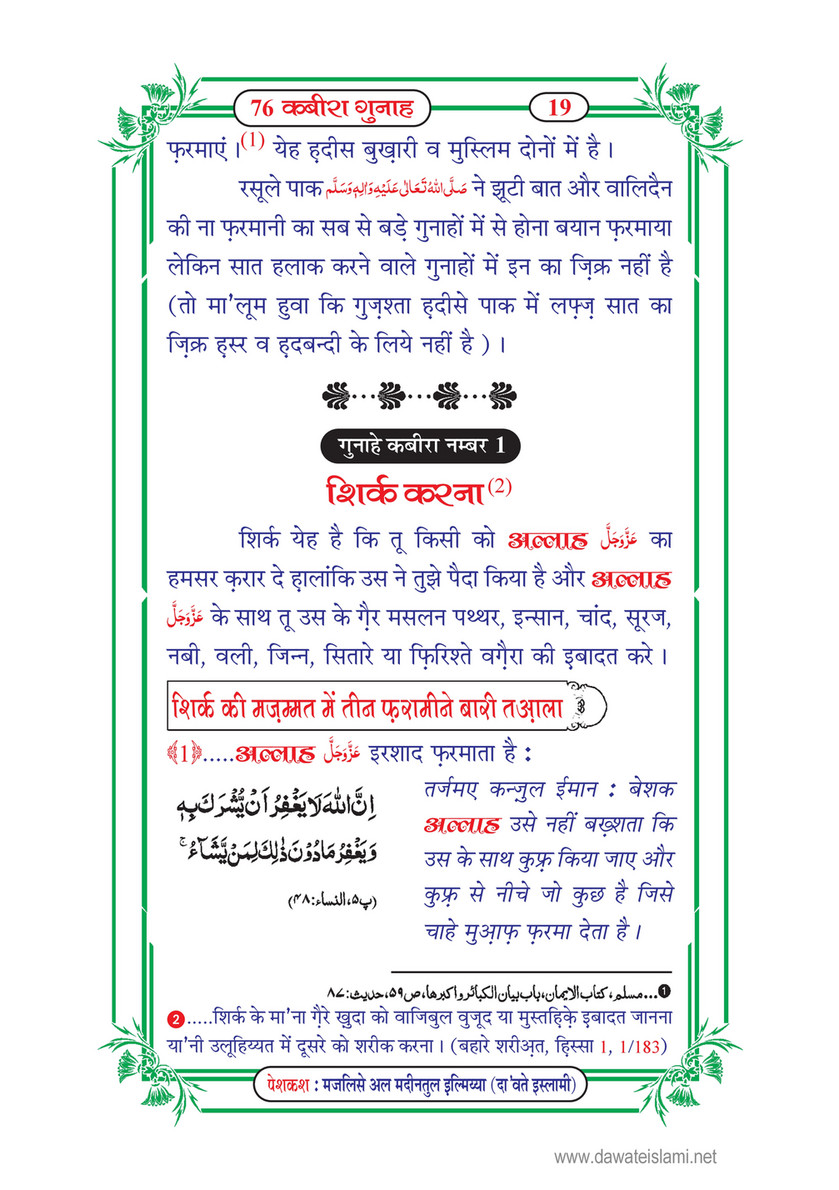 76 कबीरा गुनाह
19
फ़रमाएं ।(1) येह ह़दीस बुख़ारी व मुस्लिम दोनों में है ।
रसूले पाक صَلَّى اللّٰهُ تَعَالٰى عَلَيْهِ وَاٰلِهٖ وَسَلَّم ने झूटी बात और वालिदैन
की ना फ़रमानी का सब से बड़े गुनाहों में से होना बयान फ़रमाया
लेकिन सात हलाक करने वाले गुनाहों में इन का ज़िक्र नहीं है
(तो मा'लूम हुवा कि गुज़श्ता ह़दीसे पाक में लफ़्ज़ सात का
ज़िक्र ह़स्र व ह़दबन्दी के लिये नहीं है ) ।
गुनाहे कबीरा नम्बर 1
शिर्क करना(2)
शिर्क येह है कि तू किसी को अल्लाह عَزَّوَجَلَّ का
हमसर क़रार दे ह़ालांकि उस ने तुझे पैदा किया है और अल्लाह
عَزَّوَجَلَّ के साथ तू उस के ग़ैर मसलन पथ्थर, इन्सान, चांद, सूरज,
नबी, वली, जिन्न, सितारे या फ़िरिश्ते वग़ैरा की इ़बादत करे ।
शिर्क की मज़म्मत में तीन फ़रामीने बारी तआ़ला
﴾1﴿.....अल्लाह عَزَّوَجَلَّ इरशाद फ़रमाता है :
اِنَّ اللّٰهَ لَا يَغْفِرُ اَنْ يُّشْرَكَ بِهٖ
وَيَغْفِرُ مَا دُوْنَ ذٰلِكَ لِمَنْ يَّشَآءُ ۚ
(پ۵، النساء:۴۸)
तर्जमए कन्ज़ुल ईमान : बेशक
अल्लाह उसे नहीं बख़्शता कि
उस के साथ कुफ़्र किया जाए और
कुफ़्र से नीचे जो कुछ है जिसे
चाहे मुआ़फ़ फ़रमा देता है ।
1...مسلم، کتاب الایمان، باب بیان الکبائر و اکبرھا، ص۵۹، حدیث:۸۷
2.....शिर्क के मा'ना ग़ैरे ख़ुदा को वाजिबुल वुजूद या मुस्तह़िक़े इबादत जानना
या'नी उलूहिय्यत में दूसरे को शरीक करना । (बहारे शरीअ़त, ह़िस्सा 1, 1/183)
पेशकश : मजलिसे अल मदीनतुल इल्मिय्या (दा'वते इस्लामी)
www.dawateislami.net